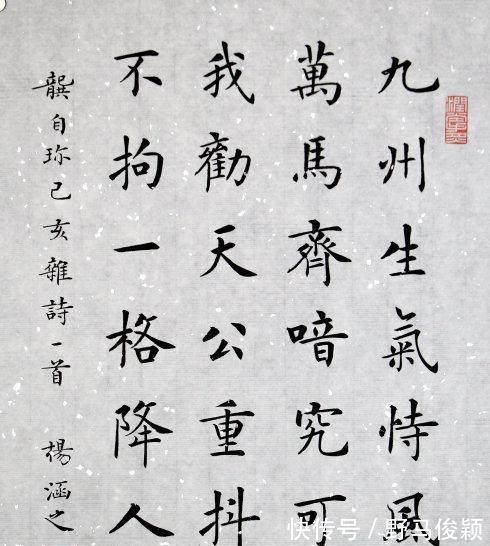 九州生氣恃風
萬馬齊喑究可
我勸天公重抖
不拘一格降人
龔自珎己亥雜詩一首 楊涵之
快传号 / 野马俊颖